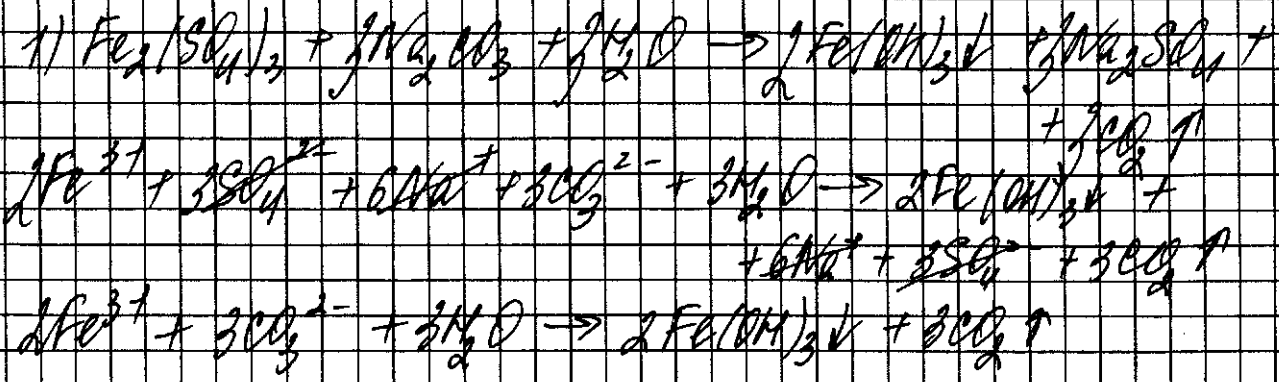 1) Fe₂(SO₄)₃ + 3Na₂CO₃ + 3H₂O → 2Fe(OH)₃↓ + 3Na₂SO₄ +
+ 3CO₂↑
2Fe³⁺ + 3SO₄²⁻ + 6Na⁺ + 3CO₃²⁻ + 3H₂O → 2Fe(OH)₃↓ +
+ 6Na⁺ + 3SO₄²⁻ + 3CO₂↑
2Fe³⁺ + 3CO₃²⁻ + 3H₂O → 2Fe(OH)₃↓ + 3CO₂↑